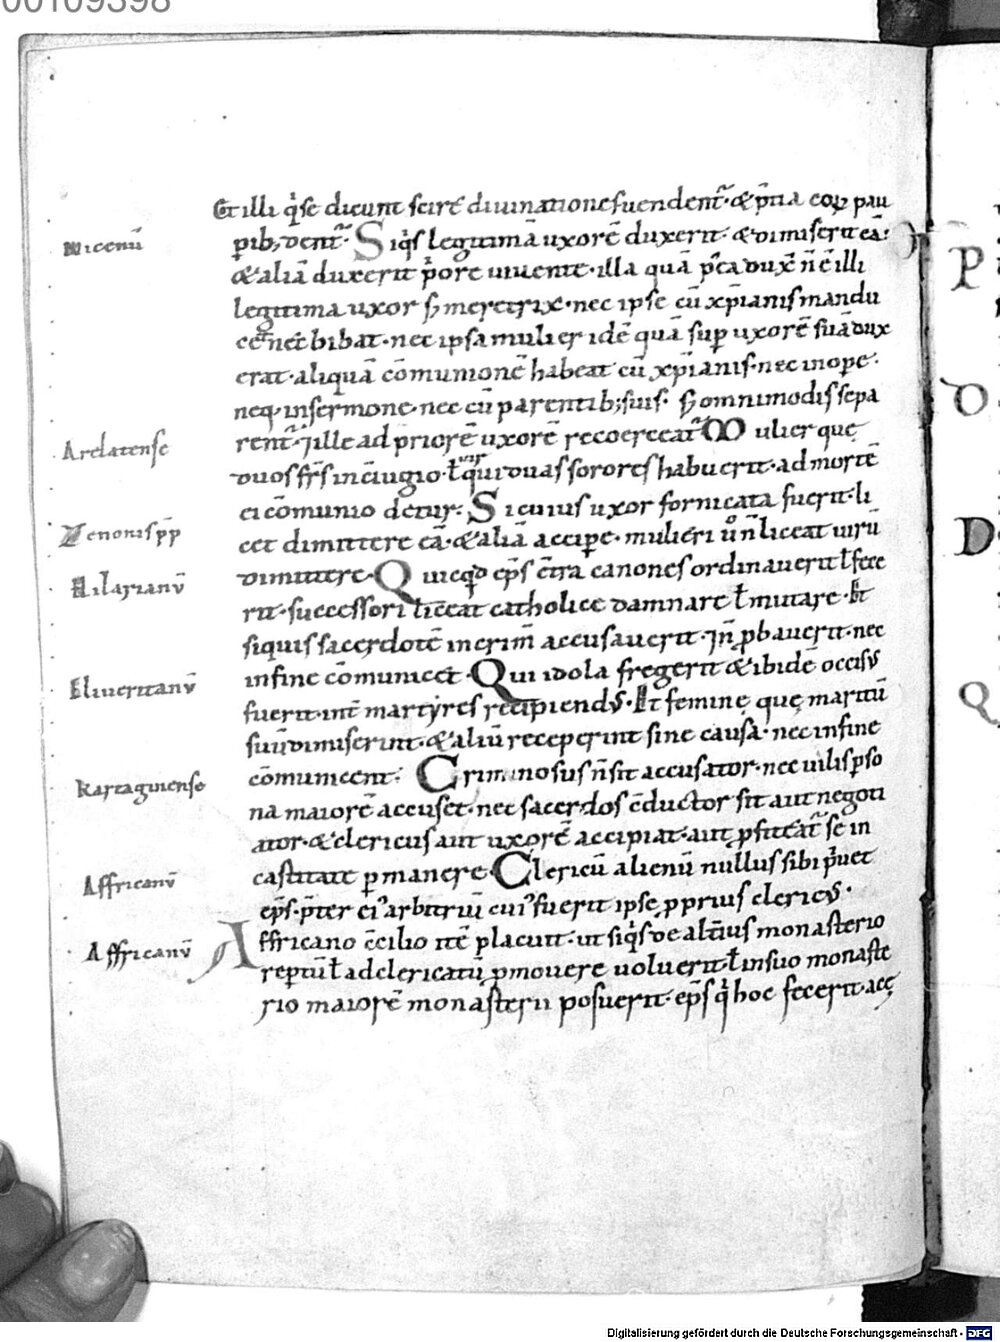 00109398
Et illi q̇ se dicunt scire diuinatione suendent̃· & p̃tia eoꝝ pau
Nicenū
pib; dent̃· Siq̇s legitimā uxorē duxerit· & dimiserit eā·
& aliā duxerit p̃ore uiuente· illa quā p̃ea dux̃ ñ ē illi
legitima uxor s; meretrix· nec ipse cū xp̃ianis mandu
cet nec bibat· nec ipsa mulier idē quā sup uxorē suā dux
erat· aliquā cōmunionē habeat cū xp̃ianis· nec in ope·
neq· in sermone· nec cū parentib; suis· s; omnimodis sepa
Arelatense
rent̃· ille ad priorē uxorē recoerceat̃ Mulier quę
duos fr̃s in c̄iugio· ł qui duas sorores habuerit· ad mortē
ei cōmunio detur· Si cuius uxor fornicata fuerit· li
Zenonis pp̄
cet dimittere eā· & aliā accipe· mulieri ů ñ liceat uirū
Hilarianū
dimittere· Quicqd ep̄s c̄tra canones ordinauerit ł fece
rit· successori liceat catholice damnare ł mutare· Et
siquis sacerdotē in crim̄ accusauerit· ⁊ ñ ꝓbauerit· nec
Eliueritanū
in fine cōmunicet· Qui idola fregerit & ibidē occisꝰ
fuerit· int̃ martyres recipiendꝰ· Et femine quę maritū
suū dimiserint· & aliū receperint sine causa· nec in fine
Kartaginense
cōmunicent· Criminosus ñ sit accusator· nec uilis pso
na maiorē accuset· nec sacerdos c̄ductor sit aut negoti
ator· & clericus aut uxorē accipiat· aut ꝓfiteat̃ se in
Affricanū
castitate pmanere· Clericū alienū nullus sibi p̃uet
ep̄s· p̃ter ei' arbitriū cui' fuerit ipse pprius clericꝰ·
Affricanū
Affricano c̄cilio itē placuit· ut siq̇s de alt̃ius monasterio
reptū ł ad clericatū ꝓmouere uoluerit· ł in suo monaste
rio maiorē monasterii posuerit· ep̄s q̇ hoc fecerit· a cę
Digitalisierung gefördert durch die Deutsche Forschungsgemeinschaft - DFG